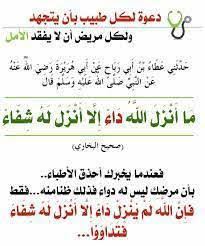 دعوة لكل طبيب بأن يتجهد
ولكل مريض أن لا يفقد الأمل
حَدَّثَنِي عَطَاءُ بْنُ أَبِي رَبَاحٍ عَنْ أَبِي هُرَيْرَةَ رَضِيَ اللَّهُ عَنْهُ
عَنِ النَّبِيِّ صَلَّى اللَّهُ عَلَيْهِ وَسَلَّمَ قَالَ
مَا أَنْزَلَ اللَّهُ دَاءً إِلَّا أَنْزَلَ لَهُ شِفَاءً
(صحيح البخاري)
فعندما يخبرك أحذق الأطباء..
بأن مرضك ليس له دواء فذلك ظنا منه...فقط
فَإِنَّ اللَّهَ لَمْ يُنْزِلْ دَاءً إِلَّا أَنْزَلَ لَهُ شِفَاءً
فَتَدَاوَوْا...